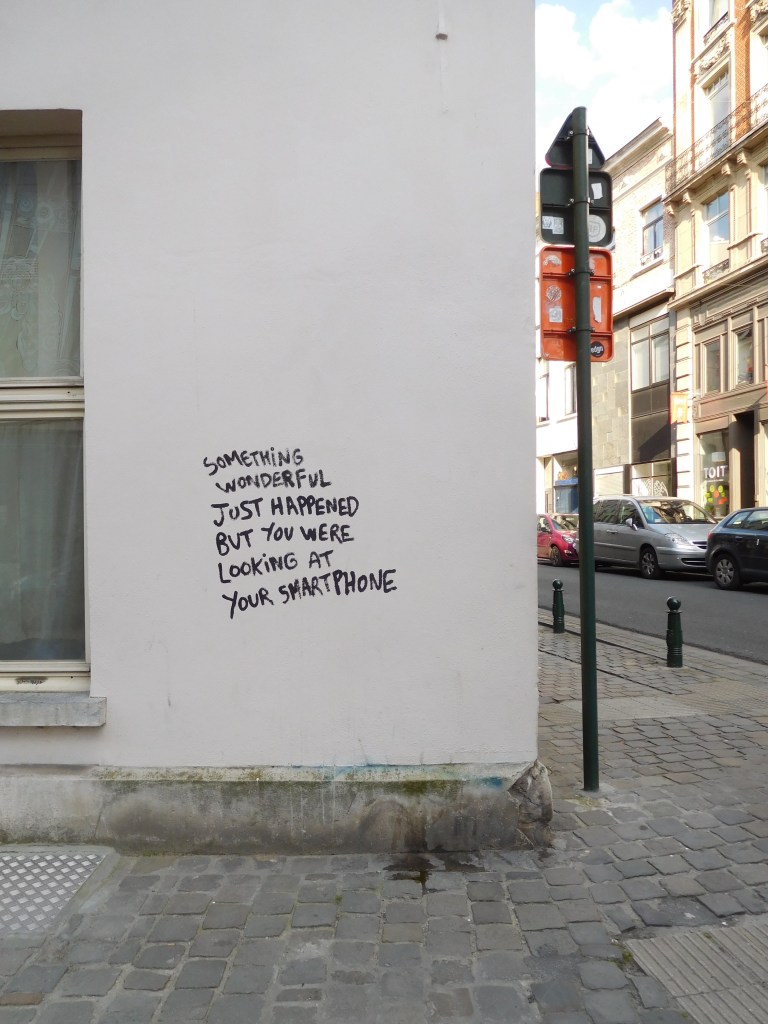 SOMETHING
WONDERFUL
JUST HAPPENED
BUT YOU WERE
LOOKING AT
YOUR SMARTPHONE
TOIT